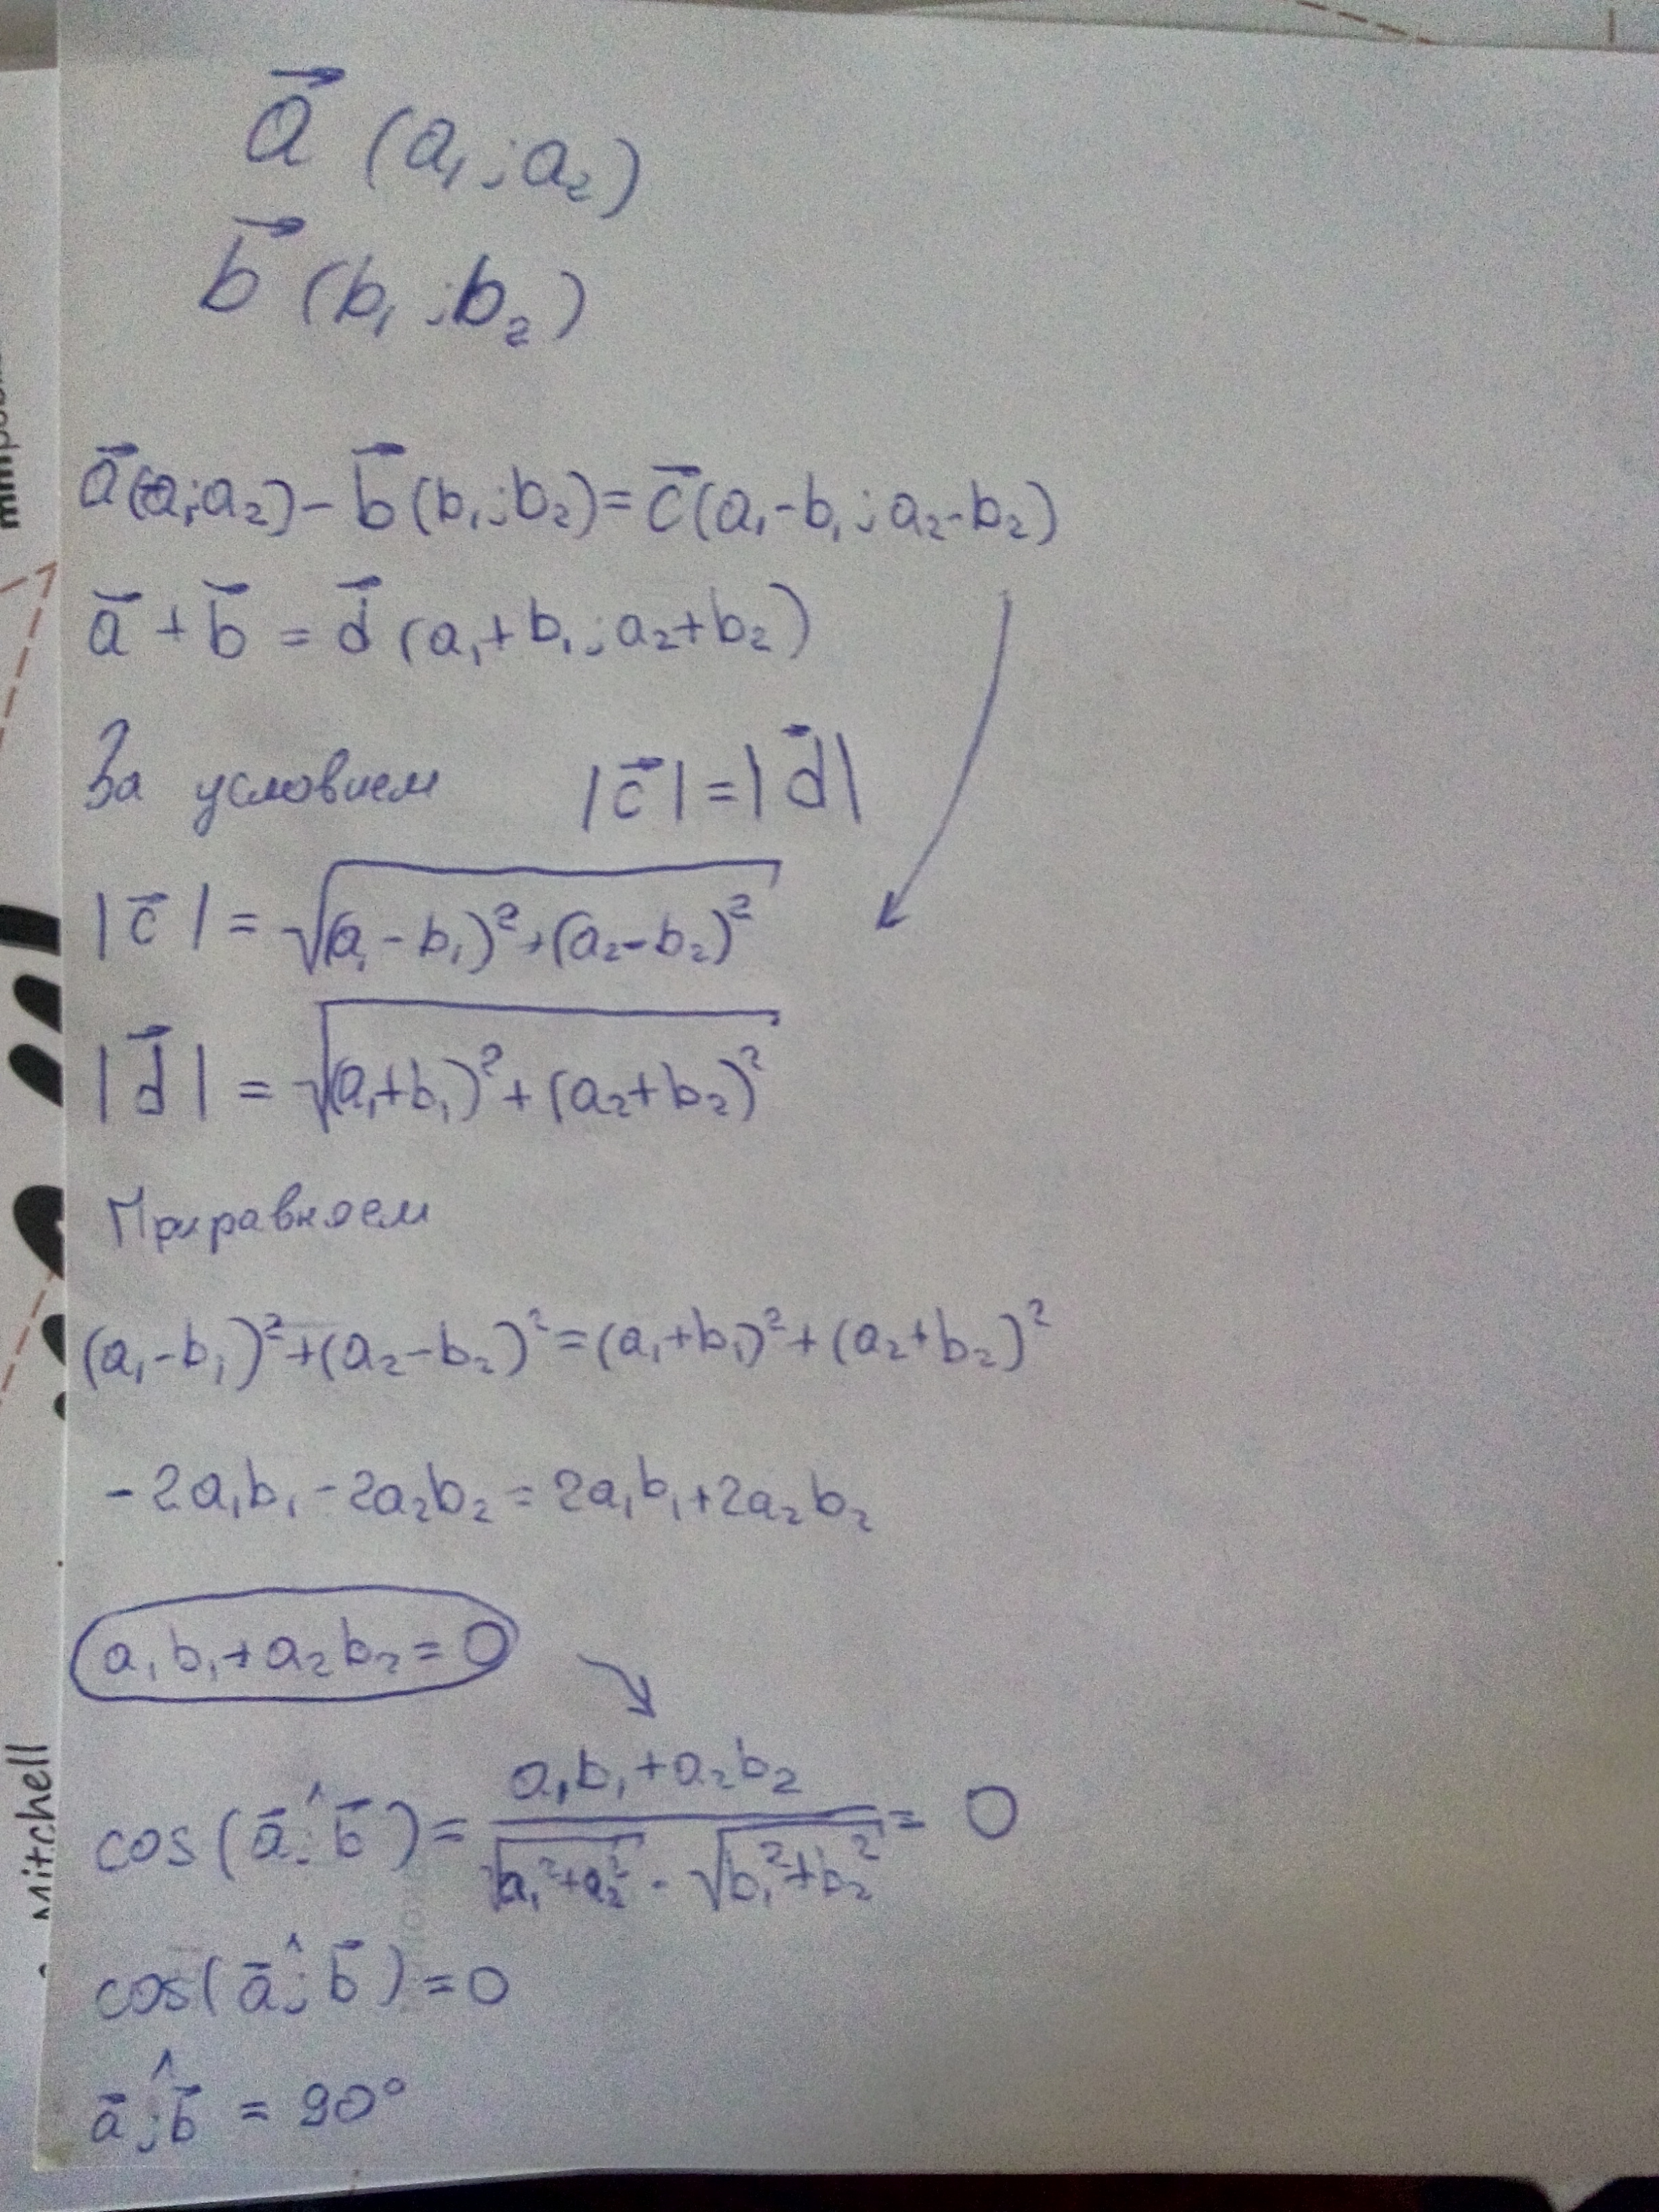 a⃗ (a₁; a₂)
b⃗ (b₁; b₂)
a⃗(a₁; a₂) - b⃗(b₁; b₂) = c⃗(a₁-b₁; a₂-b₂)
a⃗ + b⃗ = d⃗ (a₁+b₁; a₂+b₂)
За условием |c⃗| = |d⃗|
|c⃗| = √((a₁-b₁)²+(a₂-b₂)²)
|d⃗| = √((a₁+b₁)²+(a₂+b₂)²)
Приравняем
(a₁-b₁)²+(a₂-b₂)²=(a₁+b₁)²+(a₂+b₂)²
-2a₁b₁-2a₂b₂=2a₁b₁+2a₂b₂
a₁b₁+a₂b₂=0
cos(a⃗;^b⃗) = (a₁b₁+a₂b₂)/(√(a₁²+a₂²)·√(b₁²+b₂²)) = 0
cos(a⃗;^b⃗)=0
a⃗;^b⃗ = 90°
Mitchell